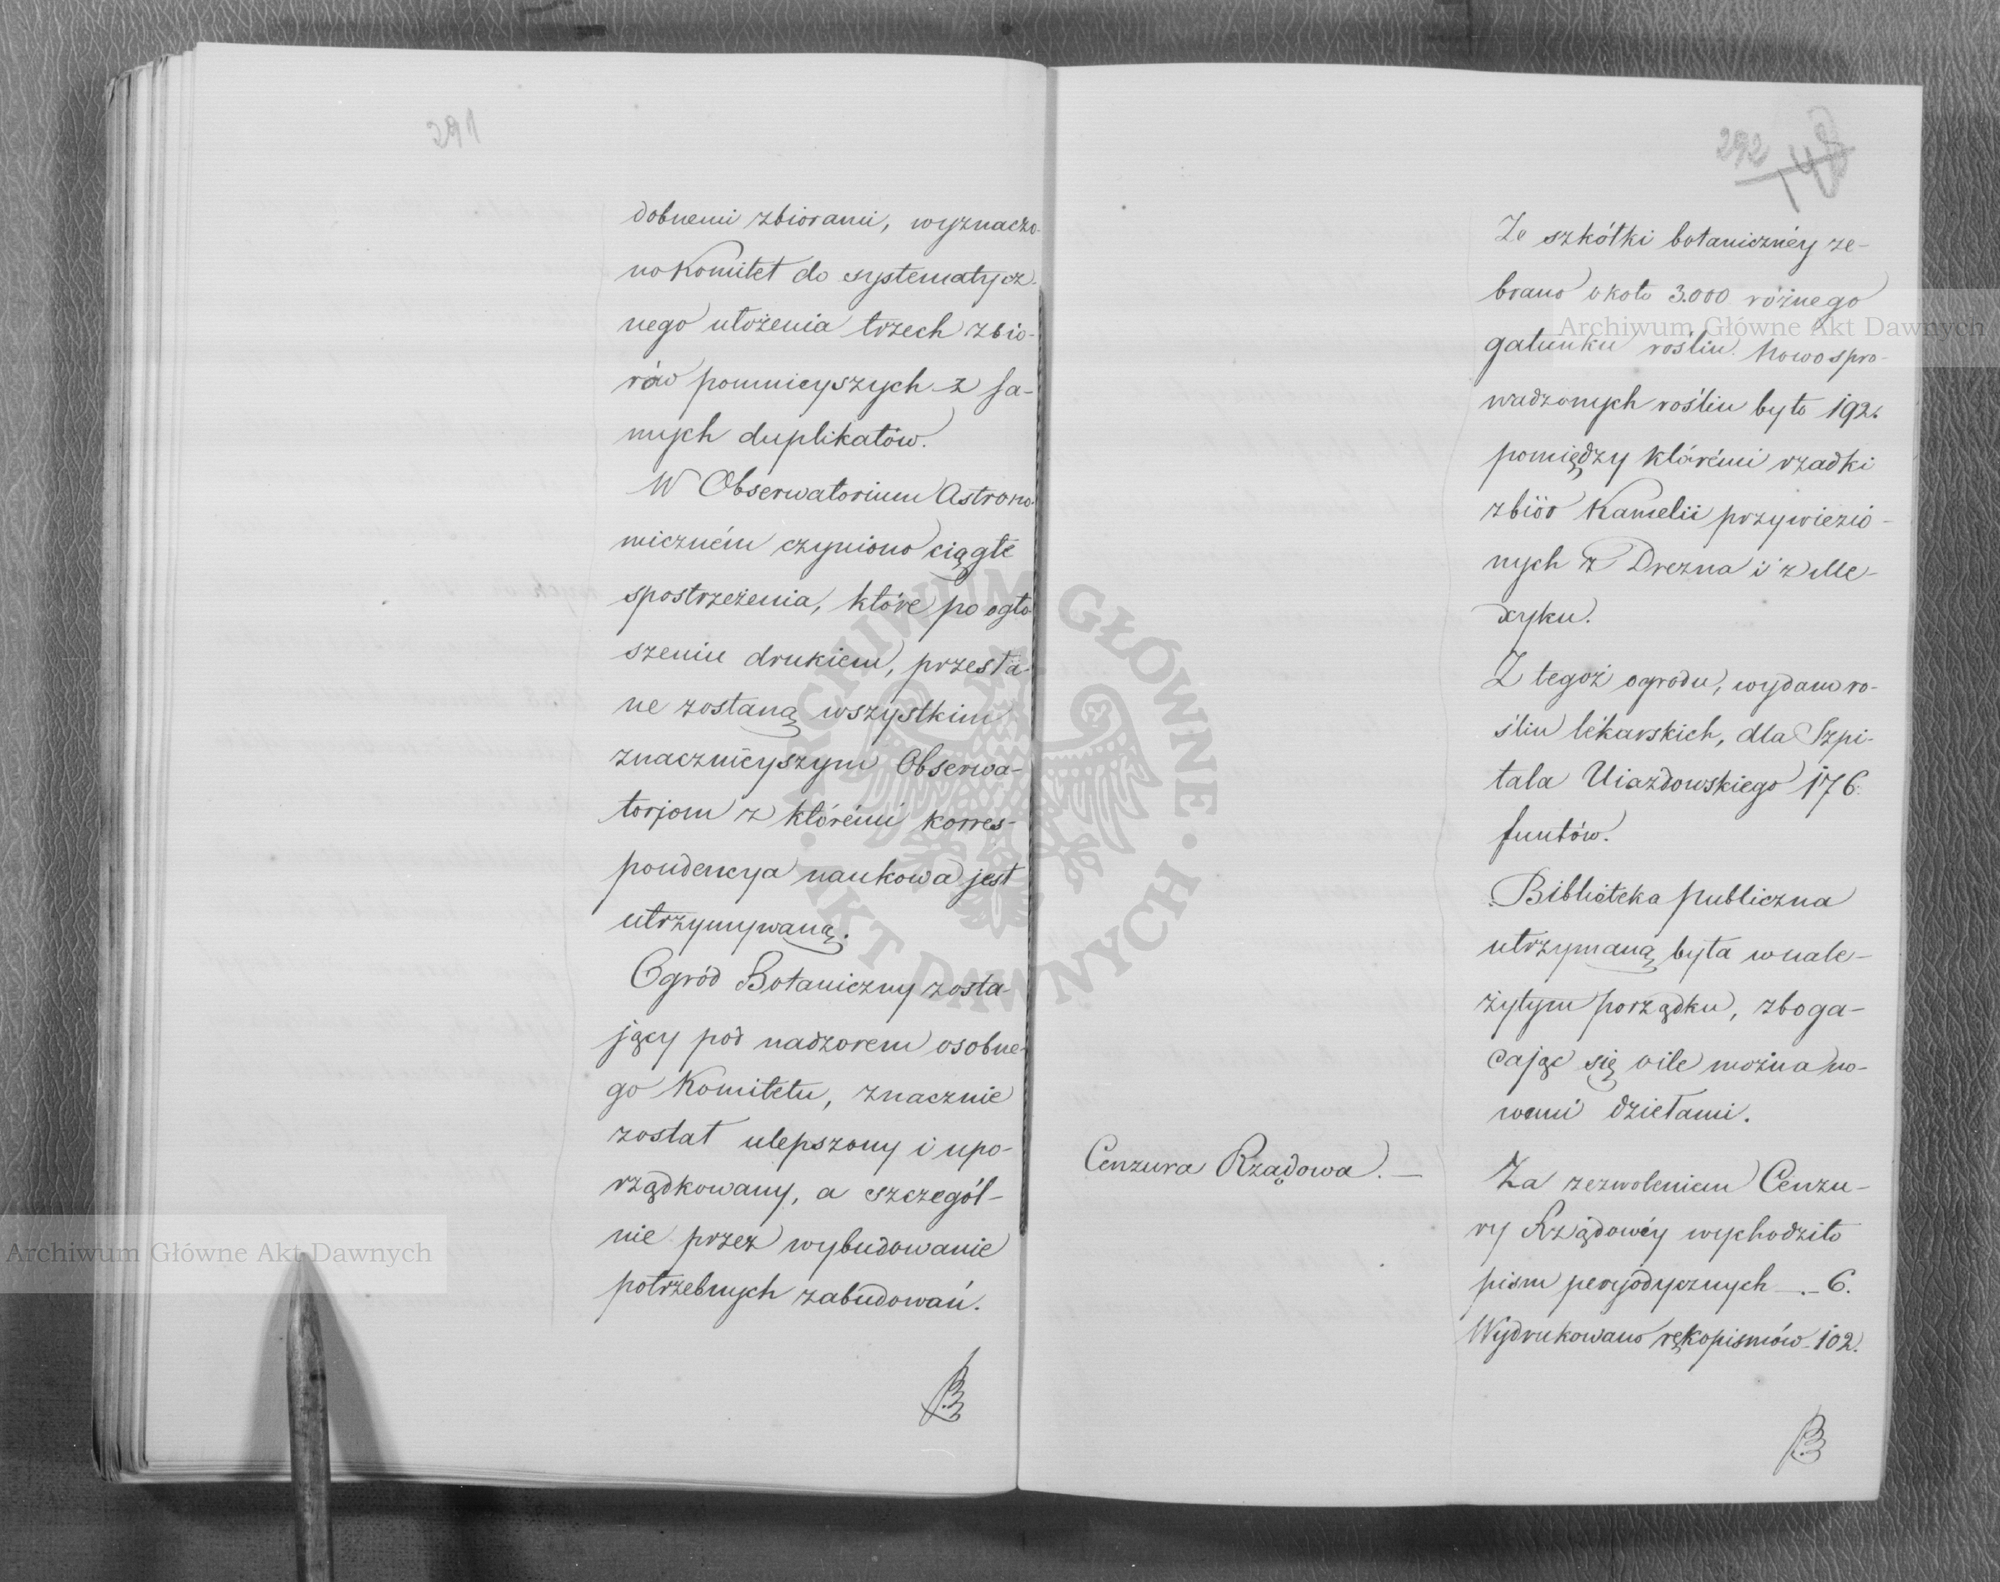 291
dobnemi zbiorami, wyznaczo-
no Komitet do systematycz-
nego ułożenia trzech zbio-
rów pomnieyszych z sa-
mych duplikatów.
W Obserwatorium Astrono-
miczném czyniono ciągłe
spostrzeżenia, które po ogło-
szeniu drukiem, przesła-
ne zostaną wszystkim
znacznieyszym Obserwa-
torjom z którémi korres-
pondencya naukowa jest
utrzymywaną.
Ogród Botaniczny zosta-
jący pod nadzorem osobne-
go Komitetu, znacznie
został ulepszony i upo-
rządkowany, a szczegól-
nie przez wybudowanie
potrzebnych zabudowań.
292
Ze szkółki botanicznéy ze-
brano około 3.000 różnego
gatunku roślin. Nowo spro-
wadzonych roślin było 192.
pomiędzy którémi rzadki
zbiór Kamelii przywiezio-
nych z Drezna i z Me-
xyku.
Z tegoż ogrodu, wydano ro-
ślin lékarskich, dla Szpi-
tala Uiazdowskiego 176.
funtów.
Biblioteka publiczna
utrzymaną była w nale-
żytym porządku, zboga-
cając się o ile można no-
wemi dziełami.
Cenzura Rządowa. —
Za zezwoleniem Cenzu-
ry Rządowéy wychodziło
pism peryodycznych —.— 6.
Wydrukowano rękopismów - 102.
Archiwum Główne Akt Dawnych
Archiwum Główne Akt Dawnych
ARCHIWUM GŁÓWNE · AKT DAWNYCH ·